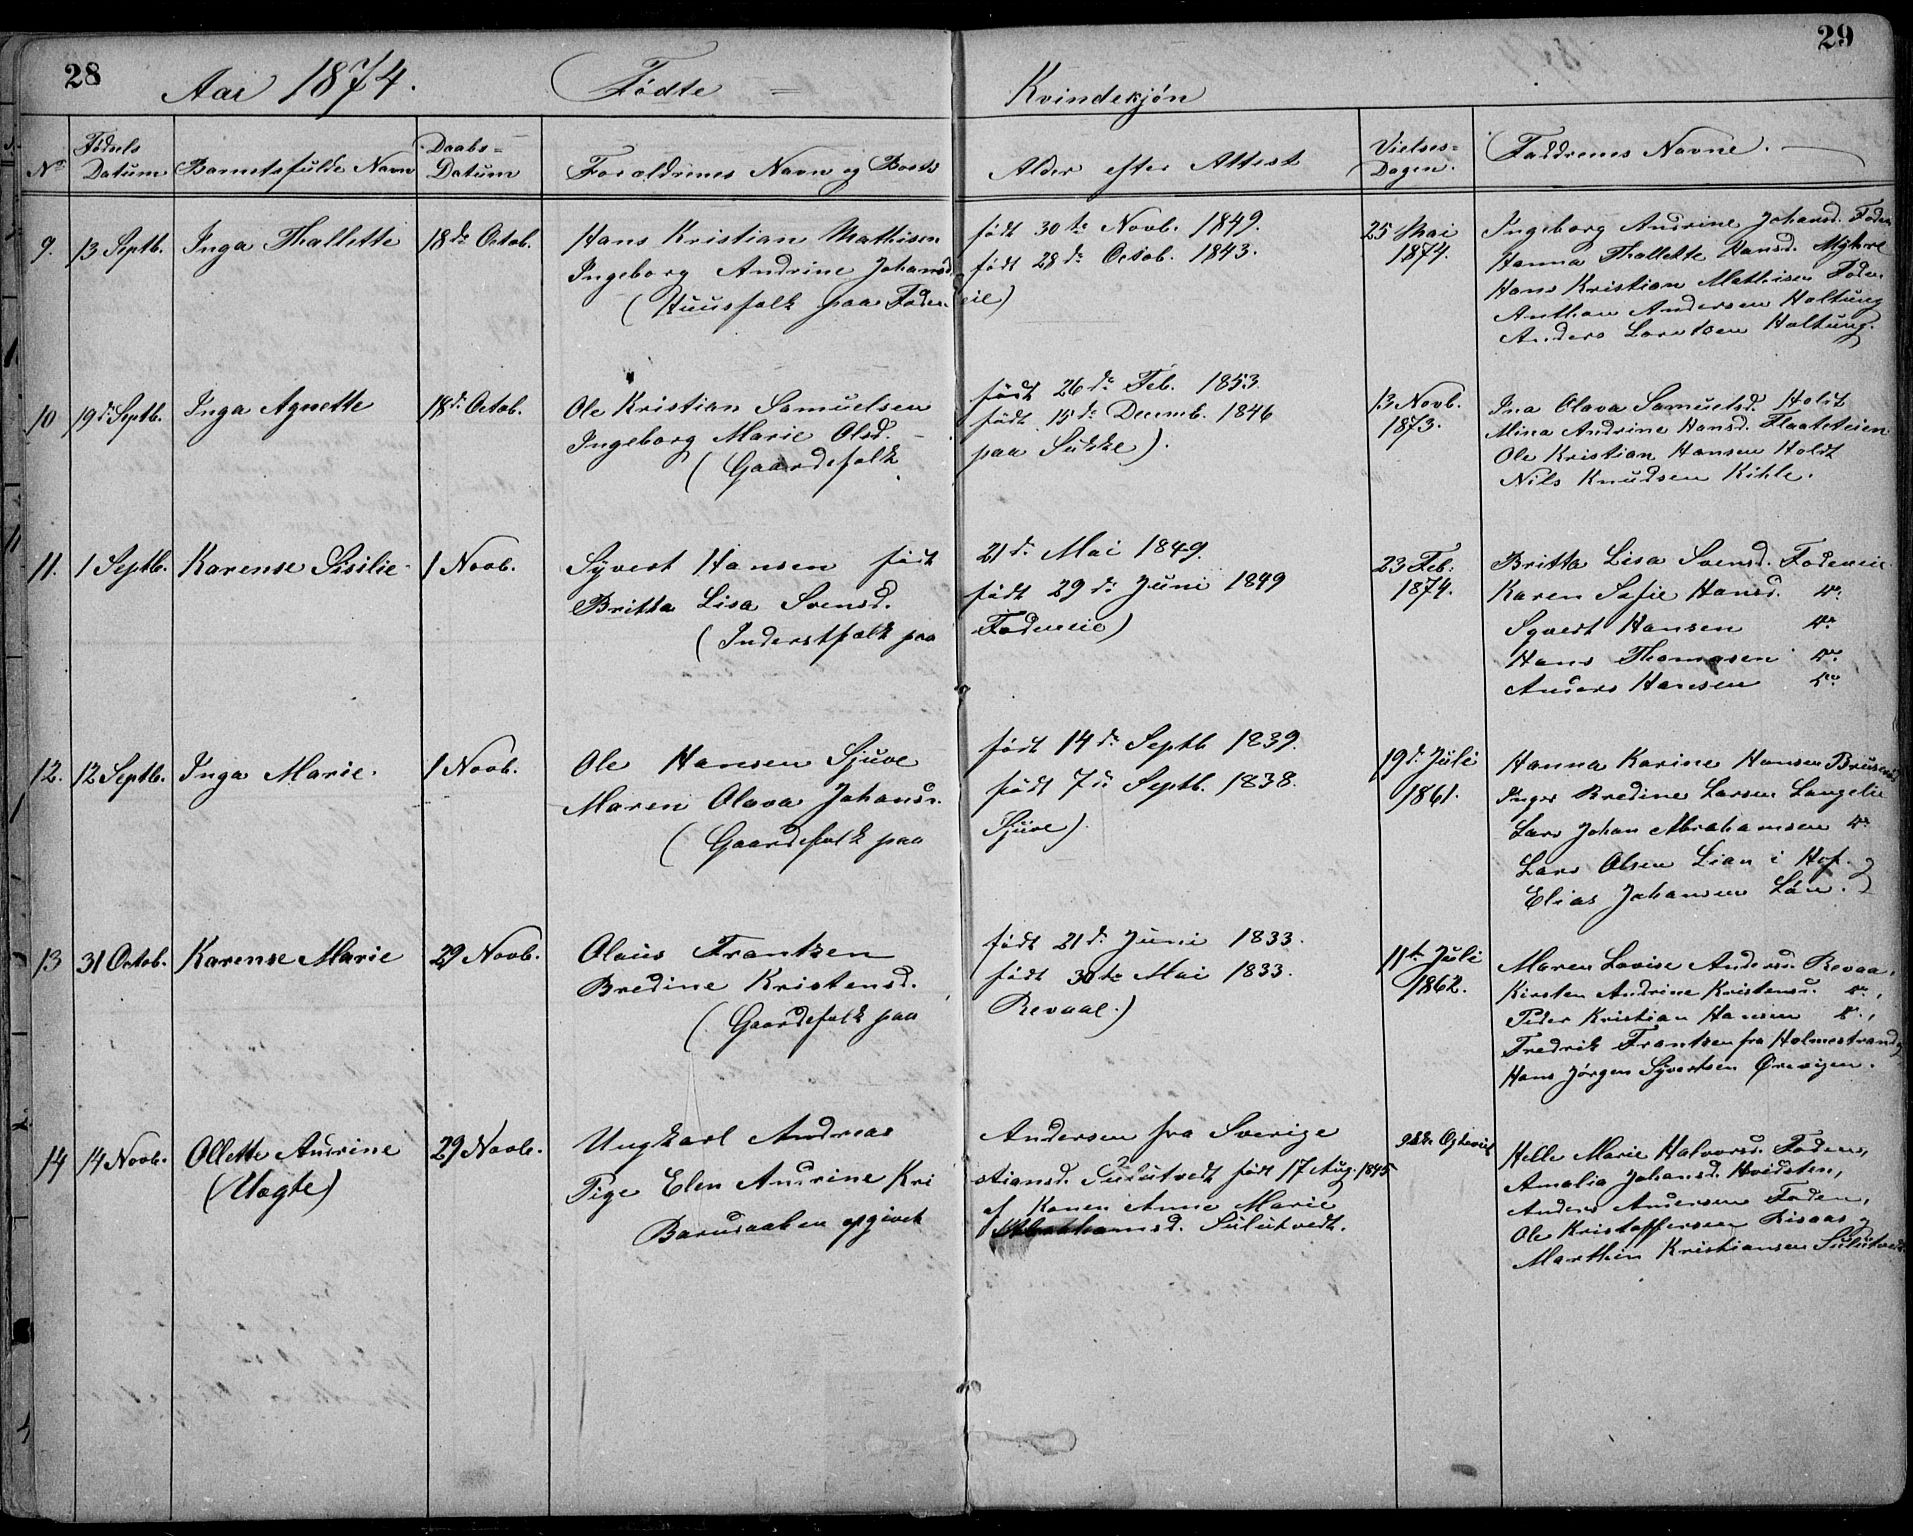 28
29
Aar 1874. Fødte = Kvindekjøn
No Fødsels Datum Barnetsfulde Navn Daabs= Datum Foraldrenes Navn og Bosts Alder efter Attest Vielses= Dagen. Faddrenes Navne.
9. 13 Septb. Inga Thallette 18de Octob. Hans Kristian Mathisen født 30te Novb. 1849. 25 Mai 1874. Ingeborg Andrine Johansd. Foden
Ingeborg Andrine Johansd. født 28de Octob. 1843. Hanna Thallette Hansd. Myhre
(Huusfolk paa Fodeneie) Hans Kristian Mathisen Foden
Anthon Andersen Holtung
Anders Lorentsen Holtung.
10 19de Septb. Inga Agnette 18de Octob. Ole Kristian Samuelsen født 26de Feb. 1853. 13 Novb. 1873. Ina Olava Samuelsd. Holdt
Ingeborg Marie Olsd. født 15de Decemb. 1846 Mina Andrine Hansd. Flaateteien
(Gaardefolk paa Sukke). Ole Kristian Hansen Holdt
Nils Knudsen Kihle.
11. 1 Septb. Karense Sisilie 1 Novb. Syvert Hansen født 21de Mai 1849. 23 Feb. 1874. Britta Lisa Svensd. Fodeneie
Britta Lisa Svensd. født 29de Juni 1849 Karen Sofie Hansd. do
(Inderstfolk paa Fodeneie) Syvert Hansen do
Hans Thomasen do
Anders Hansen do
12. 12 Septb. Inga Marie. 1 Novb. Ole Hansen Sjuve født 14de Septb 1839. 19de Juli 1861. Hanna Karine Hansen
Maren Olava Johansd. født 7de Septb. 1838. Inger Bredine Larsen Langelie
(Gaardefolk paa Sjuve). Lars Johan Abrahamsen do
Lars Olsen Lian i Hof. og
Elias Johansen Løn.
13 31 Octob. Karense Marie 29 Novb. Olaus Frantzen født 21de Juni 1833. 11te Juli 1862. Maren Lovise Andersd. Revaa,
Bredine Kristensd. født 30te Mai 1833. Kirsten Andrine Kristensd. do,
(Gaardefolk paa Revaal.) Peder Kristian Hansen do,
Fredrik Frantzen fra Holmestrand og
Hans Jørgen Syvertsen Ørevigen.
14 14 Novb. Ollette Andrine 29 Novb. Ungkarl Andreas Andersen fra Sverige ikke Egtevied Helle Marie Halvorsd. Foden,
(Uægte) Pige Elen Andrine Kristiansd. Sulutvedt født 17 Aug. 1845 Amalia Johansd. Hvidsten,
Barnsaaben opgivet af Konen Anne Marie Anders Andersen Foden,
Abrahamsd. Sulutvedt. Ole Kristoffersen Lisaas og
Marthin Kristiansen Sulutvedt